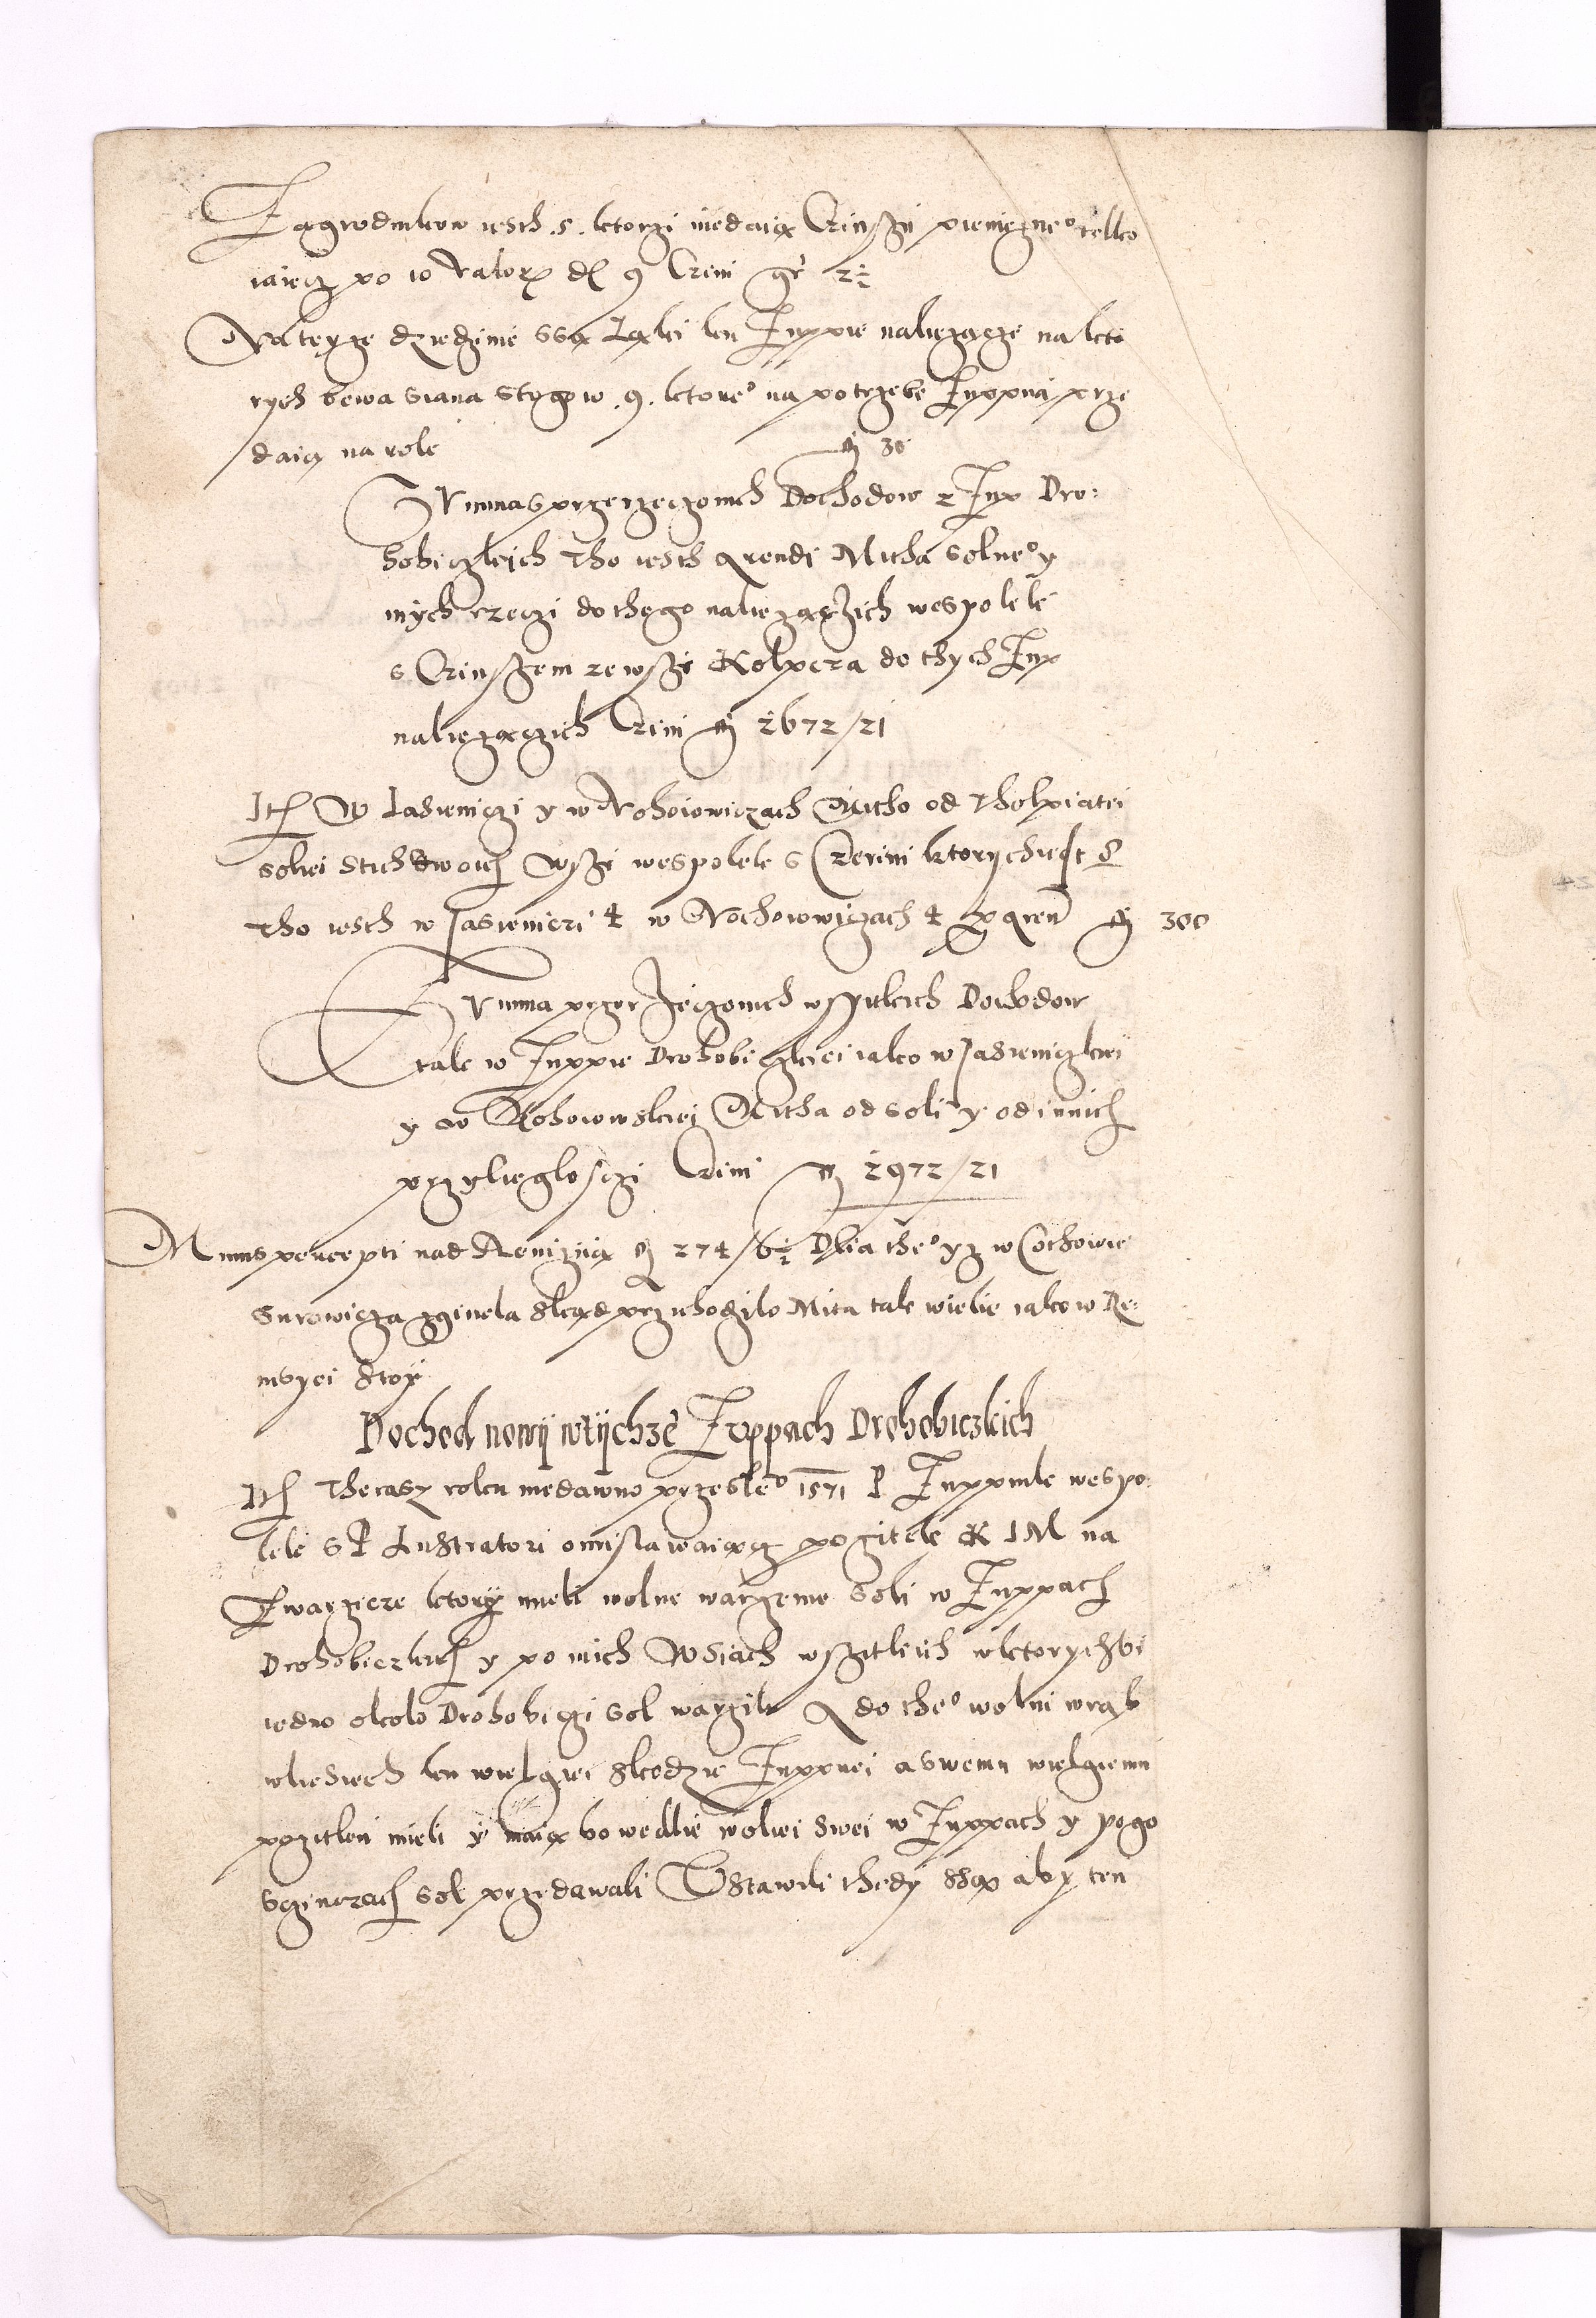 Zagrodnikow iesth .5. ktorzi niedaią Czinszu pieniezne° telko
iaiecz po 10 valor(um) d 9 Czini gr 2½
Na teyze dziedzinie ssą Ląki ku Zuppie nalezącze na kto
rych bewa siana Stogow .9. ktore° na potrzebe Zuppną prze
daią na role f 30
Summa sprzerzeczonich Dochodow z Zup Dro:
hobiczkich tho iesth Arendi Mitha Solne° y
inych rzeczi do thego naliezączich wespolek
s Czinszem ze wszi Kolpcza do thych Zup
naliezączich Czini f 2672/21
Ite(m) W Jasieniczi y w Nohoiowiczach Mitho od Tholpiatei
soliei Stich dwoi(ch) Wszi wespolek s Czerini ktorych iest 8
tho iesth w Jasieniczi 4 w Nochowwiczach 4 p(er) Aren(dam) f 300
Summa przerzeczonich wszytkich Dochodow
tak w Zuppie Drohobiczkiei iako w Jasieniczkiei
y w Nohowowskiei Mitha od Soli y od innich
przylieglosczi Czini f 2972/21
Minus percepti nad Remizią f 274/6½ Dlia the° yz w Cochowie
Surowicza zginela skąd przichodzilo Mita tak wielie iako w Re:
misyei Stoy
Dochod nowy wtychze Zuppach Drohobiczkich
Ite(m) Therasz roku niedawno przesle° 1571 P Zuppnik wespo
lek S P Lustratori omislawaiącz pozitek K J M na
Zwarzicze ktorzy mieli wolne warzenie Soli w Zuppach
Drohobiczkich y po inich Wsiach wszitkich w ktorychbi
iedno okolo Drohobiczi Sol warzili A do the° wolni wrąb
wliesiech ku wielgiei skodzie Zuppnei a swemu wielgiemu
pozitku mieli y maią bo wedlie woliei swei w Zuppach y pogo
sczinczach sol przedawali Ustawili thedy ssą aby ten